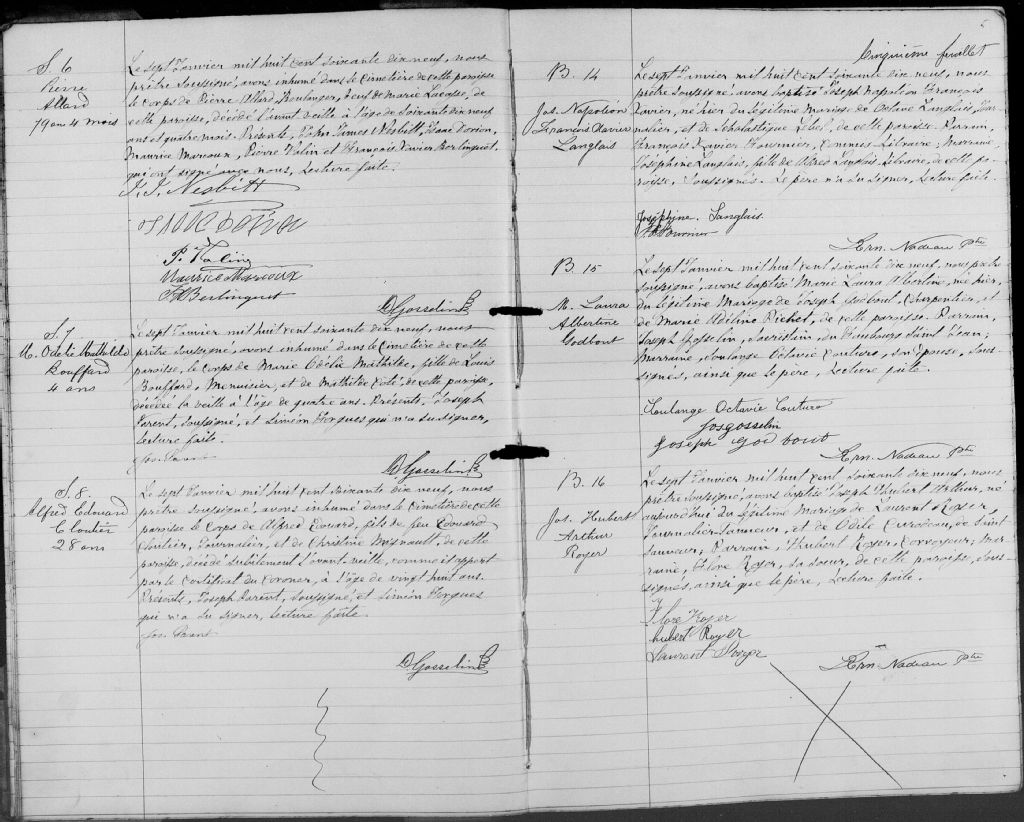 S. 6
Pierre
Allard
79 ans 4 mois
Le sept Janvier mil huit cent soixante dix neuf, nous
prêtre soussigné, avons inhumé dans le cimetière de cette paroisse
le corps de Pierre Allard, Boulanger, veuf de Marie Lacasse, de
cette paroisse, décédé l'avant veille à l'âge de soixante dix neuf
ans et quatre mois. Présents, John James Nesbitt, Isaac Dorion,
Maurice Marcoux, Pierre Valin et François Xavier Berlinguet,
qui ont signé avec nous, Lecture faite.
J. J. Nesbitt
Isaac Dorion
P. Valin
Maurice Marcoux
F X Berlinguet
D Gosselin Ptre
S. 7
M. Odélie Mathilde
Bouffard
4 ans
Le sept Janvier mil huit cent soixante dix neuf, nous
prêtre soussigné, avons inhumé dans le cimetière de cette
paroisse, le corps de Marie Odélie Mathilde, fille de Louis
Bouffard, Menuisier, et de Mathilde Côté, de cette paroisse,
décédée la veille à l'âge de quatre ans. Présents, Joseph
Parent, soussigné, et Siméon Vergues qui n'a su signer,
lecture faite.
Jos. Parent
D Gosselin Ptre
S. 8.
Alfred Edouard
Cloutier
28 ans
Le sept Janvier mil huit cent soixante dix neuf, nous
prêtre soussigné, avons inhumé dans le cimetière de cette
paroisse le Corps de Alfred Edouard, fils de feu Edouard
Cloutier, Journalier, et de Christine Mignault, de cette
paroisse, décédé subitement l'avant-veille, comme il appert
par le certificat du Coroner, à l'âge de vingt huit ans.
Présents, Joseph Parent, soussigné, et Siméon Vergues
qui n'a su signer, lecture faite.
Jos. Parent
D Gosselin Ptre
5
Cinquième feuillet
B. 14
Jos. Napoléon
François Xavier
Langlais
Le sept Janvier mil huit cent soixante dix neuf, nous
prêtre soussigné, avons baptisé Joseph Napoléon François
Xavier, né hier du légitime Mariage de Octave Langlais, Jour-
nalier, et de Scholastique Lebel, de cette paroisse. Parrain,
François Xavier Fournier, Commis Libraire, Marraine,
Joséphine Langlais, fille de Alfred Langlais, Libraire, de cette pa-
roisse, soussignés. Le père n'a su signer, Lecture faite.
Joséphine Langlais
F. X Fournier
Ern. Nadeau Ptre
B. 15
M. Laura
Albertine
Godbout
Le sept Janvier mil huit cent soixante dix neuf, nous prêtre
soussigné, avons baptisé Marie Laura Albertine, née hier,
du légitime Mariage de Joseph Godbout, Charpentier, et
de Marie Adéline Pichet, de cette paroisse. Parrain,
Joseph Gosselin, Sacristain, du Faubourg Saint Jean;
Marraine, Soulange Octavie Couture, son épouse, sous-
signés, ainsi que le père, Lecture faite.
Soulange Octavie Couture
Jos gosselin
Joseph godbout
Ern. Nadeau Ptre
B. 16
Jos. Hubert
Arthur
Royer
Le sept Janvier mil huit cent soixante dix neuf, nous
prêtre soussigné, avons baptisé Joseph Hubert Arthur, né
aujourd'hui du légitime Mariage de Laurent Royer,
Journalier-Tanneur, et de Odile Curodeau, de Saint-
Sauveur; Parrain, Hubert Royer, Corroyeur; Mar-
raine, Flore Royer, sa soeur, de cette paroisse, sous-
signés, ainsi que le père, Lecture faite.
Flore Royer
hubert Royer
Laurent Royer
Ern. Nadeau Ptre